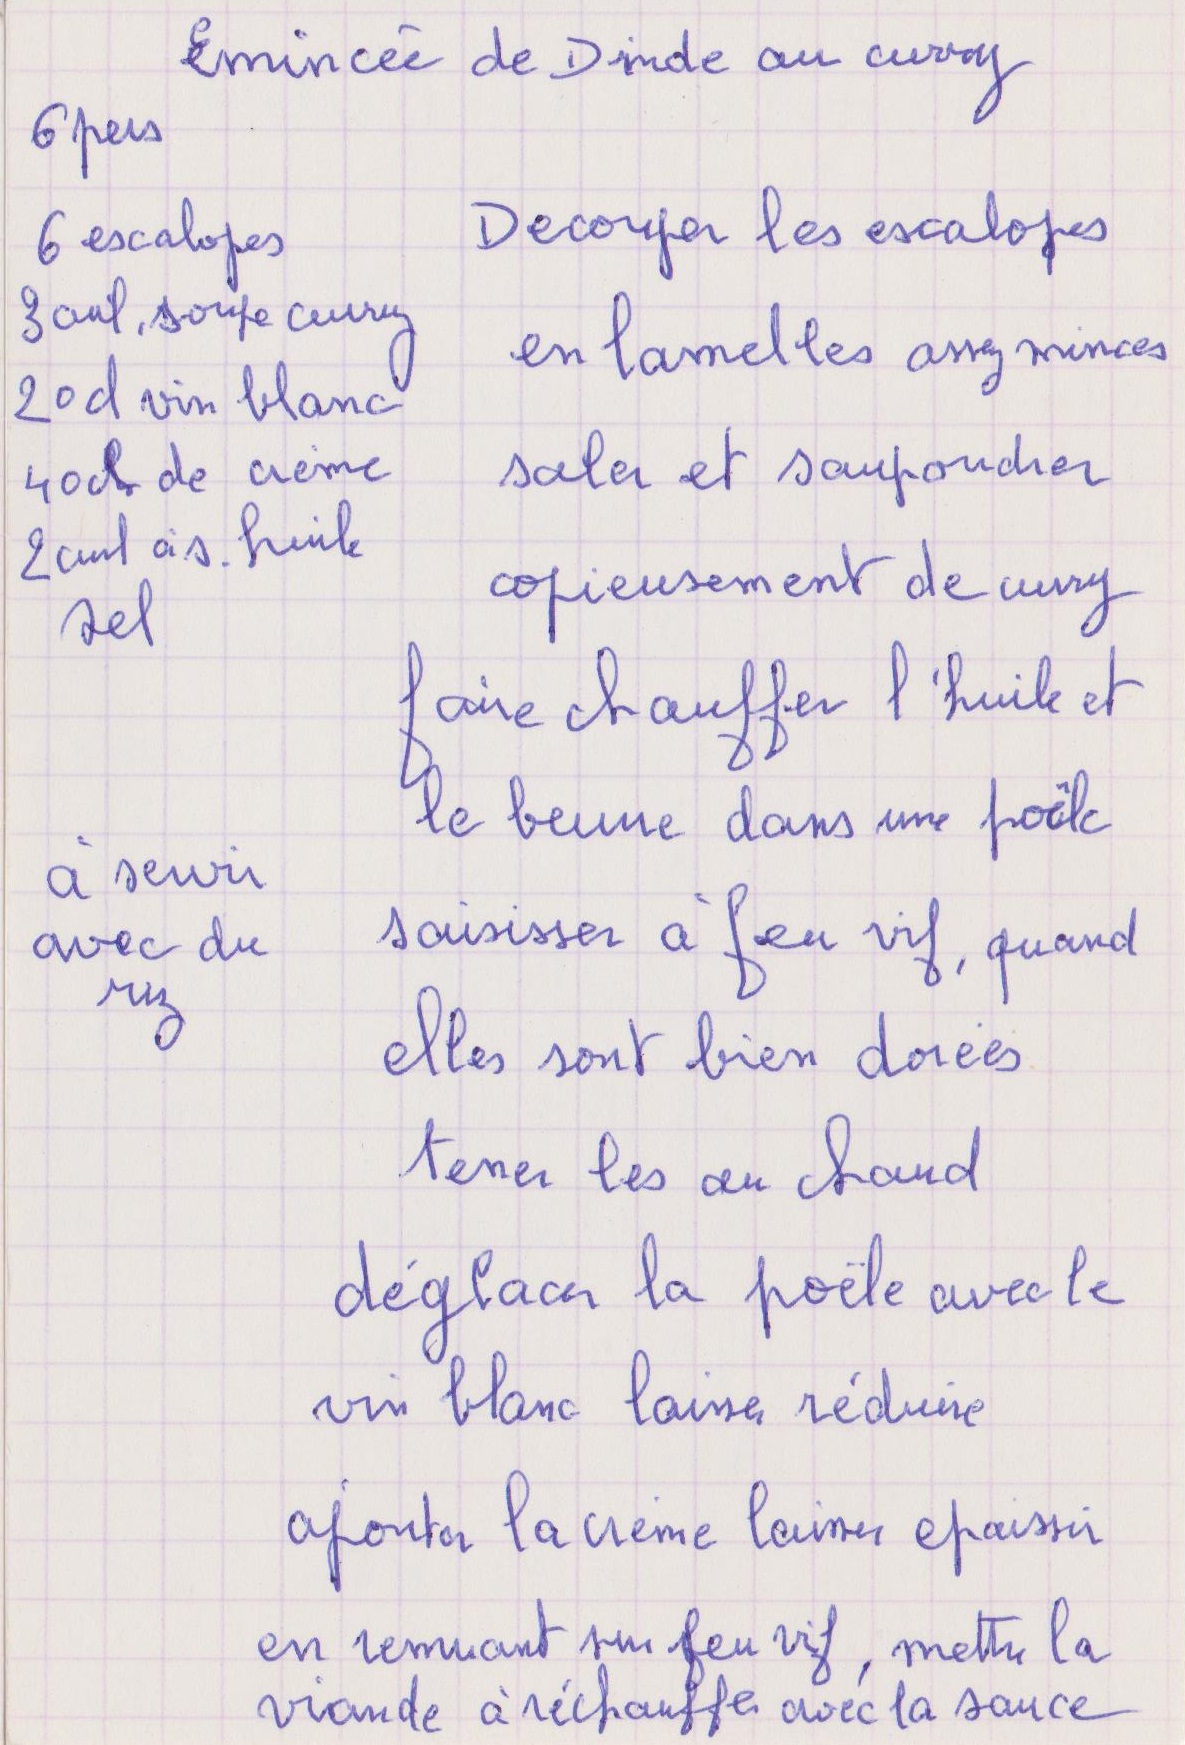 Emincée de Dinde au curry
6 pers
6 escalopes
3 cuil. soupe curry
20 cl vin blanc
40 cl de crème
2 cuil à s. huile
sel
à servir
avec du
riz
Decouper les escalopes
en lamelles assez minces
saler et saupoudrer
copieusement de curry
faire chauffer l'huile et
le beurre dans une poêle
saisisser à feu vif, quand
elles sont bien dorées
tener les au chaud
déglacer la poële avec le
vin blanc laisser réduire
ajouter la crème laisser epaissir
en remuant sur feu vif, mettre la
viande à réchauffer avec la sauce